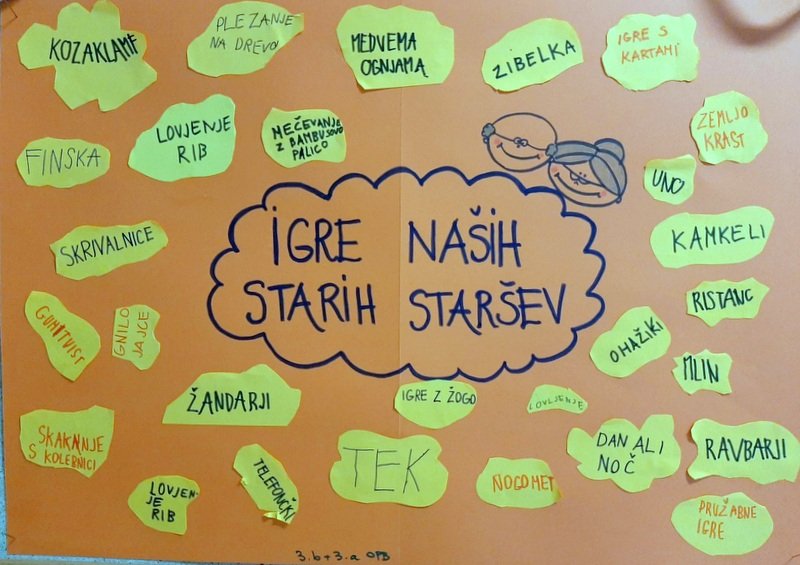 KOZAKLAMF
PLEZANJE
NA DREVO
MEDVEMA
OGNJAMA
ZIBELKA
IGRE S
KARTAMI
FINSKA
LOVJENJE
RIB
MEČEVANJE
Z BAMBUSOVO
PALICO
ZEMLJO
KRAST
UNO
SKRIVALNICE
IGRE NAŠIH
STARIH STARŠEV
KAMKELI
RISTANC
GUMITVIST
GNILO
JAJCE
OHAŽIKI
MLIN
ŽANDARJI
IGRE Z ŽOGO
LOVLJENJE
SKAKANJE
S KOLEBNICI
TELEFONČKI
TEK
NOGOMET
DAN ALI
NOČ
RAVBARJI
LOVJEN-
JE
RIB
PRUŽABNE
IGRE
3.b + 3.a OPB